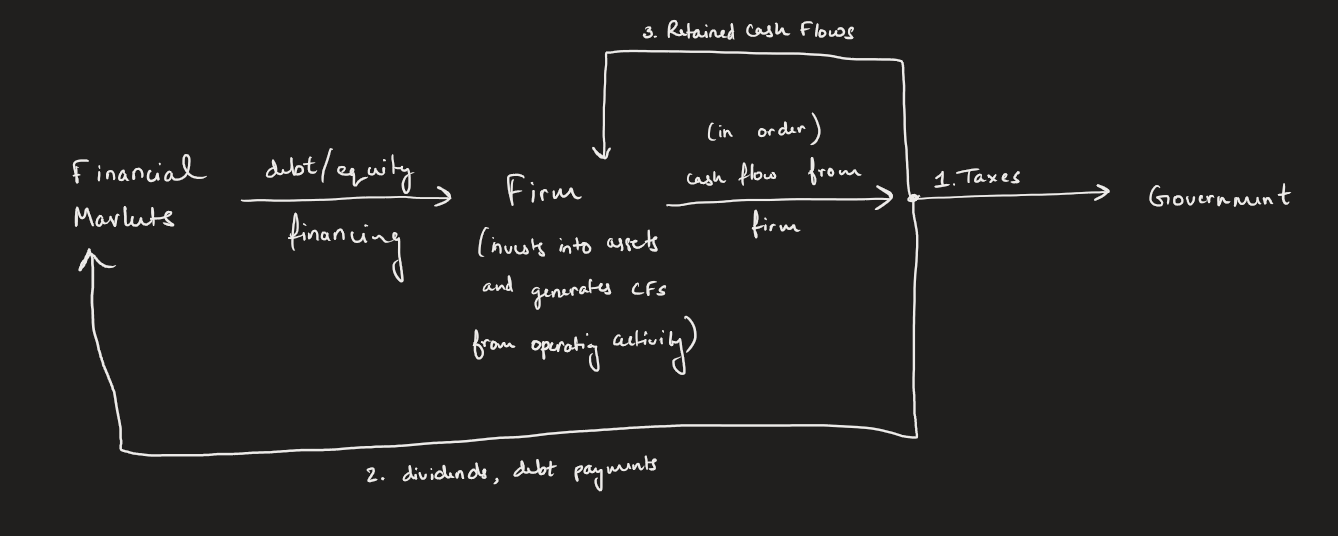 3. Retained Cash Flows
(in order)
Financial
Markets
debt/equity
financing
Firm
(invests into assets
and generates CFs
from operating activity)
cash flow from
firm
1. Taxes
Government
2. dividends, debt payments